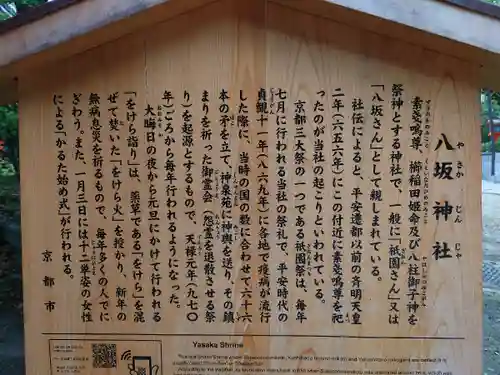 八坂神社
やさかじんじゃ
素戔嗚尊、櫛稲田姫命及び八柱御子神を
祭神とする神社で、一般に「祇園さん」又は
「八坂さん」として親しまれている。
社伝によると、平安遷都以前の斉明天皇
二年（六五六年）にこの付近に素戔嗚尊を祀
ったのが当社の起こりといわれている。
京都三大祭の一つである祇園祭は、毎年
七月に行われる当社の祭礼で、平安時代の
貞観十一年（八六九年）に各地で疫病が流行
した際に、当時の国の数に合わせて六十六
本の矛を立て、神泉苑に神輿を送り、その鎮
まりを祈った御霊会（怨霊を退散させる祭
り）を起源とするもので、天禄元年（九七〇
年）ごろから毎年行われるようになった。
大晦日の夜から元旦にかけて行われる
「をけら詣り」は、薬草である「をけら」を混
ぜて焚いた「をけら火」を授かり、新年の
無病息災を祈るもので、毎年多くの人でに
ぎわう。また、一月三日には十二単姿の女性
による「かるた始め式」が行われる。
京都市
Yasaka Shrine